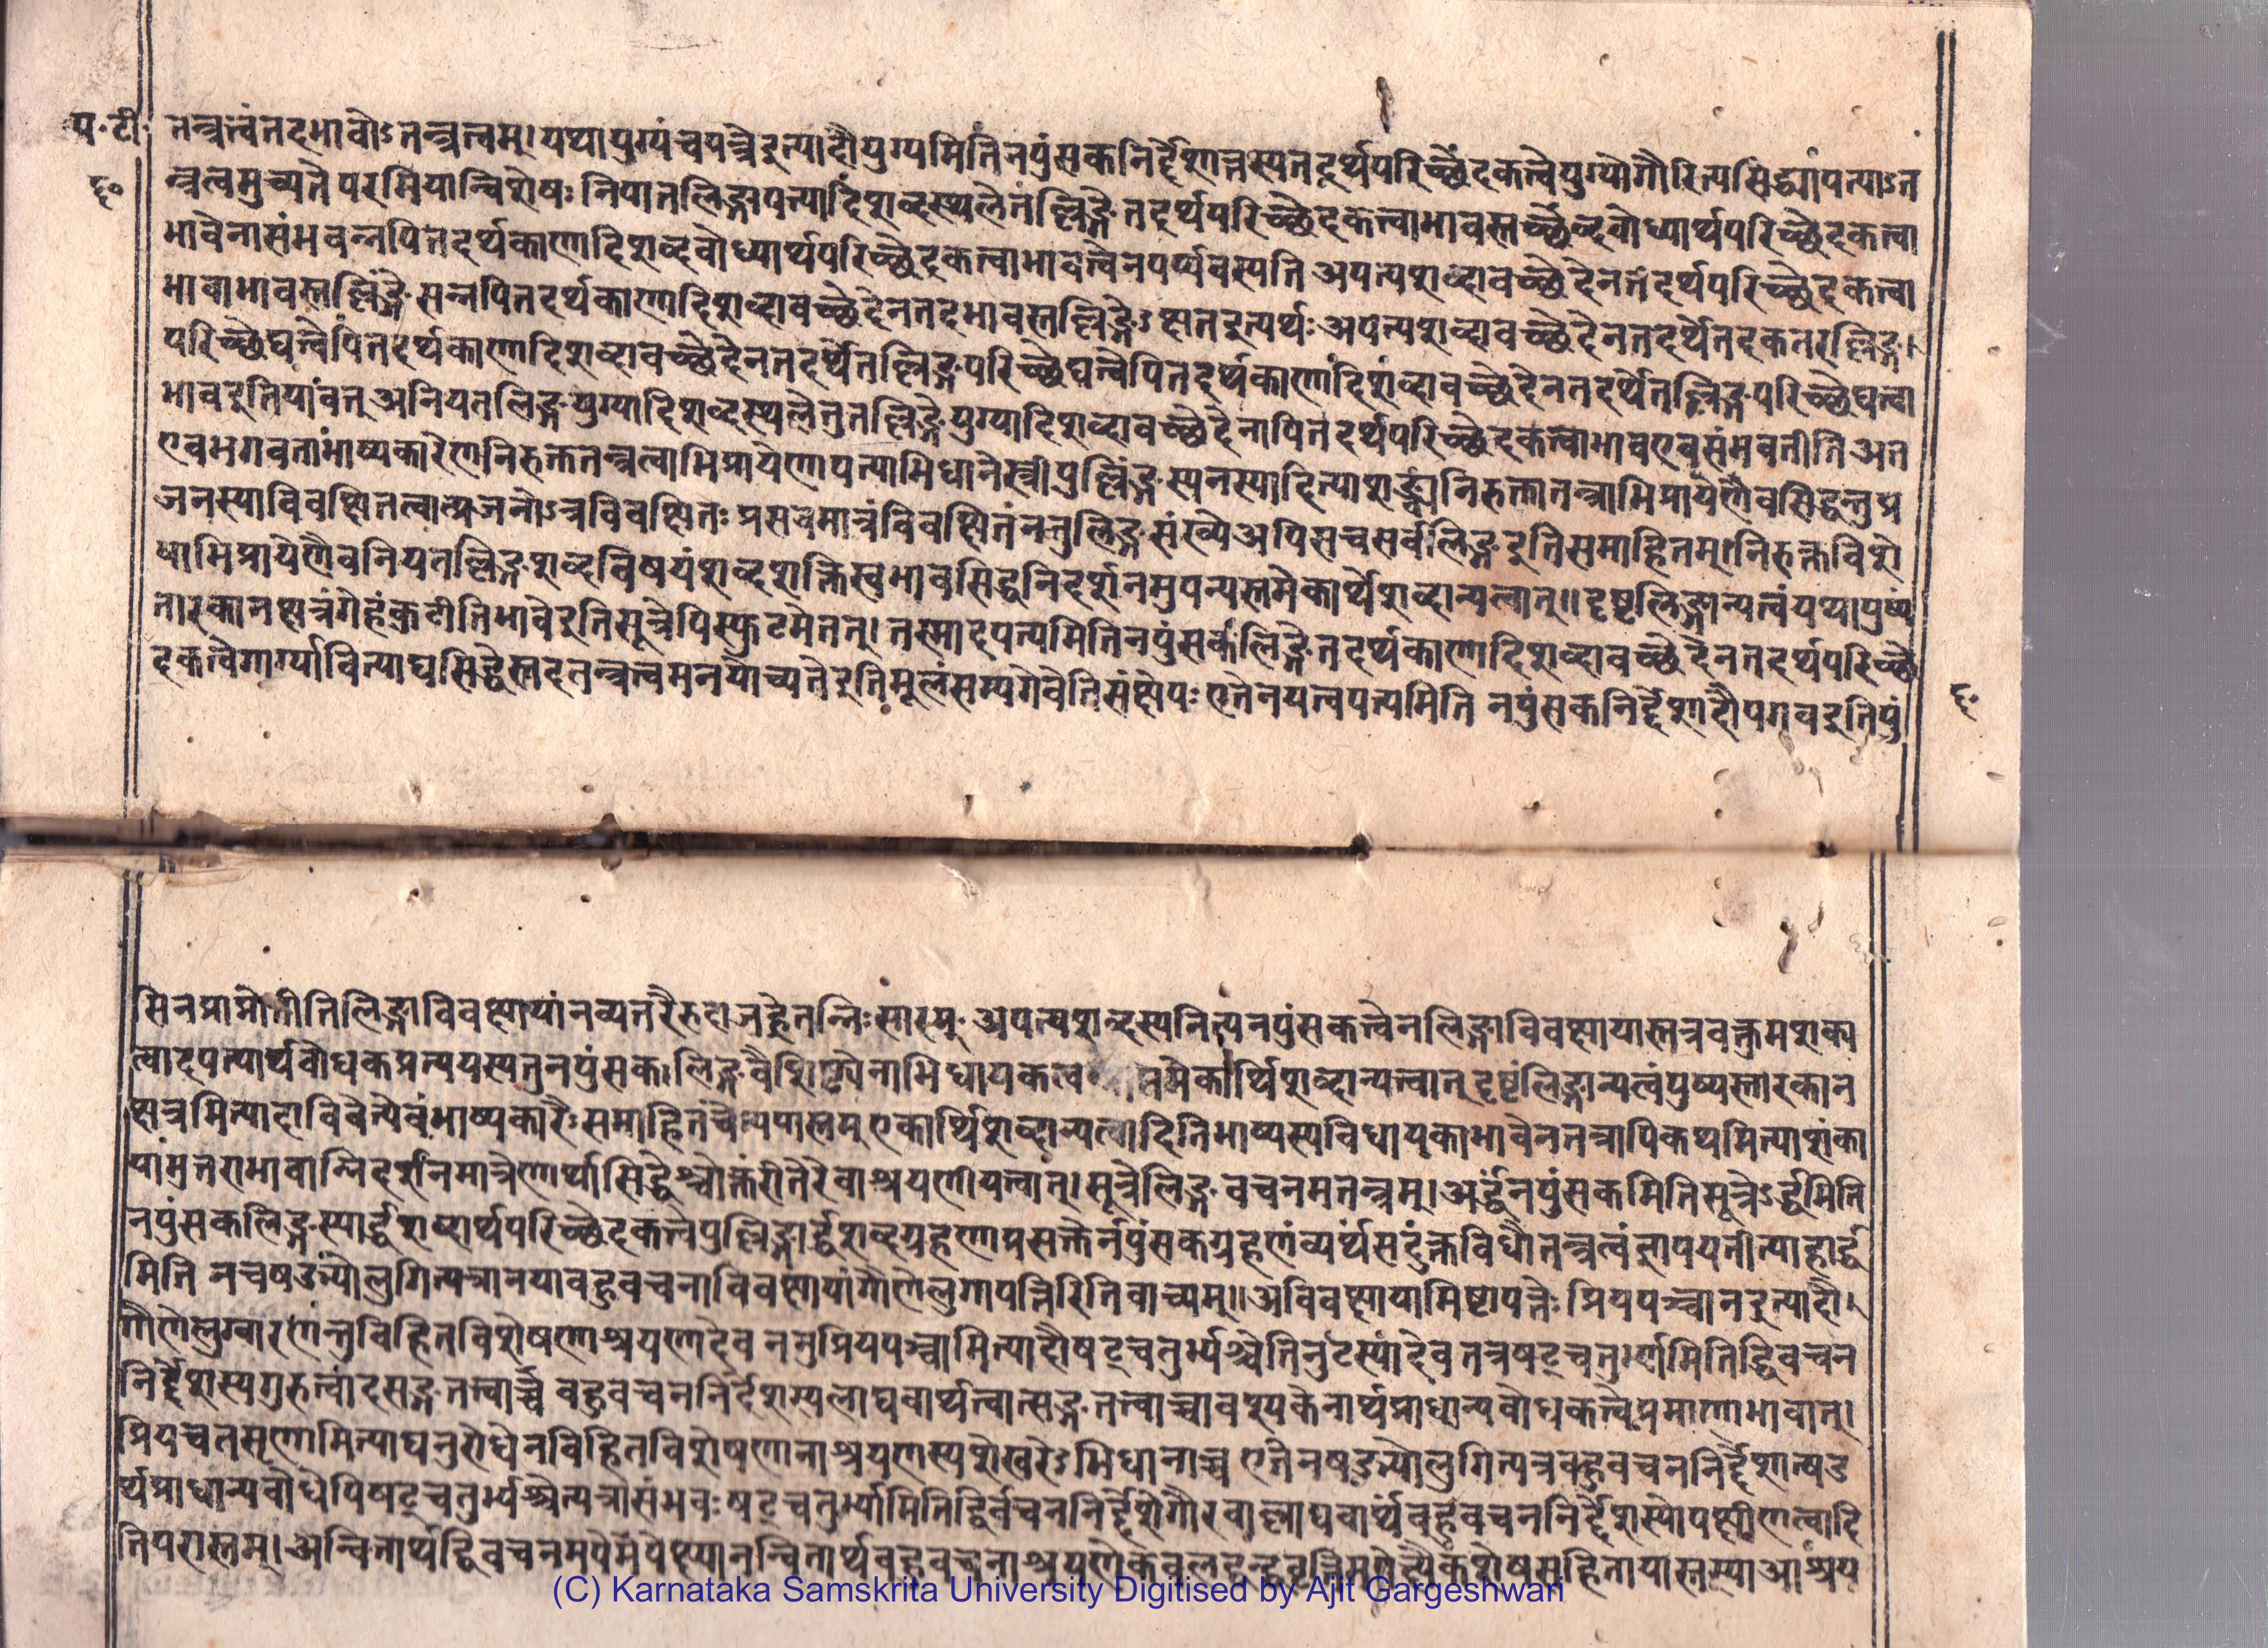 प॰टी॰
६॰
तन्त्रत्वंतदभावोऽतन्त्रत्वम्।यथायुग्यंचपत्रैइत्यादौयुग्यमितिनपुंसकनिर्द्देशात्तस्यतदर्थपरिच्छेदकत्वेयुग्योगौरित्यसिद्ध्यापत्याऽत
न्त्रत्वमुच्यतेपरमियान्विशेषःनिपातलिङ्गापत्यादिशब्दस्थलेतंल्लिङ्गेतदर्थपरिच्छेदकत्वाभावस्तच्छब्दबोध्यार्थपरिच्छेदकत्वा
भावेनासंभवन्नपितदर्थकाणादिशब्दबोध्यार्थपरिच्छेदकत्वाभावत्वेनपर्य्यवस्यति अपत्यशब्दावच्छेदेनतदर्थपरिच्छेदकत्वा
भावाभावस्तल्लिङ्गेसन्नपितदर्थकाणादिशब्दावच्छेदेनतदभावस्तल्लिङ्गेऽक्षतइत्यर्थःअपत्यशब्दावच्छेदेनतदर्थेतदेकतरल्लिङ्ग।
परिच्छेद्यत्वेपितदर्थकाणादिशब्दावच्छेदेनतदर्थेतल्लिङ्गपरिच्छेद्यत्वेपितदर्थकाणादिशब्दावच्छेदेनतदर्थेतल्लिङ्गपरिच्छेद्यत्वा
भावइतियावत्अनियतलिङ्गयुग्यादिशब्दस्थलेतुतल्लिङ्गेयुग्यादिशब्दावच्छेदेनापितदर्थपरिच्छेदकत्वाभावएवसंभवतीतिअत
एवभगवताभाष्यकारेणनिरुक्ततन्त्रत्वाभिप्रायेणापत्याभिधानेस्त्रीपुल्लिंङ्गस्यनस्यादित्याशङ्क्यनिरुक्तातन्त्राभिप्रायेणैवसिद्धन्तुप्र
जनस्याविवक्षितत्वात्प्रजनोऽत्रविवक्षितःप्रसवमात्रंविवक्षितंनतुलिङ्गसंख्येअपिसचसर्वलिङ्गइतिसमाहितम्।निरुक्तविशे
षाभिप्रायेणैवनियतल्लिङ्गशब्दविषयंशब्दशक्तिस्वभावसिद्धनिदर्शनमुपन्यस्तमेकार्थेशब्दान्यत्वात्॥दृष्टलिङ्गान्यत्वंयथापुष्यं
तारकानक्षत्रंगेहंकुटीतिभावेइतिसूत्रेपिस्फुटमेतत्।तस्मादपत्यमितिनपुंसकंलिङ्गेतदर्थकाणादिशब्दावच्छेदेनतदर्थपरिच्छे
दकत्वेगार्ग्याबित्याद्यसिद्धेस्तदतन्त्रत्वमनयोच्यतेइतिमूलंसम्यगेवेतिसंक्षेपः एतेनयत्त्वपत्यमिति नपुंसकनिर्द्देशादौपगवइतिपुं
६॰
सिनप्राप्नोतीतिलिङ्गाविवक्षायांनव्यतरैरुदाजह्रेतन्निःसारम्॰ अपत्यशब्दस्यनित्यनपुंसकत्वेनलिङ्गाविवक्षायास्तत्रवक्तुमशक्य
त्वादपत्यार्थबोधकप्रत्ययस्यतुनपुंसकलिङ्गवैशिष्ट्येनाभिधायकत्व मेकार्थेशब्दान्यत्वात् दृष्टंलिङ्गान्यत्वंपुष्यस्तारकान
क्षत्रमित्यादाविवेत्येवंभाष्यकारैःसमाहितंचेत्यपास्तम्एकार्थेशब्दान्यत्वादितिभाष्यस्यविधायकाभावेनतत्रापिकथमित्याशंका
यांमुत्तराभावान्निदर्शनमात्रेणार्थासिद्धेश्चोक्तरीतेरेवाश्रयणीयत्वात्।सूत्रेलिङ्गवचनमतन्त्रम्।अर्द्धंनपुंसकमितिसूत्रेऽर्द्धमिति
नपुंसकलिङ्गस्यार्द्धशब्दार्थपरिच्छेदकत्वेपुल्लिङ्गार्द्धशब्दग्रहणाप्रसक्तेर्नपुंसकग्रहणंव्यर्थंसदुक्तविधौतन्त्रत्वंज्ञापयतीत्याहार्द्ध
मिति नचषड्भ्योलुगित्यत्रानयाबहुवचनाविवक्षायांगौणेलुगापत्तिरितिवाच्यम्॥अविवक्षायामिष्टापत्तेः प्रियपञ्चानइत्यादौ।
गौणेलुग्वारणंतुविहितविशेषणाश्रयणादेव ननुप्रियपञ्चामित्यादौषट्चतुर्भ्यश्चेतिनुट्स्यादेव तत्रषट्चतुर्भ्यामितिद्विवचन
निर्द्देशस्यगुरुत्वादसङ्गतत्वाच्च बहुवचननिर्देशस्यलाघवार्थत्वात्सङ्गतत्वाच्चावश्यकेनार्थप्राधान्यबोधकत्वेप्रमाणाभावात्।
प्रियचतसृणामित्याद्यनुरोधेनविहितविशेषणानाश्रयणस्यशेखरेऽभिधानाच्च एतेनषड्भ्योलुगित्यत्रबहुवचननिर्द्देशात्षड
र्थप्राधान्यबोधेपिषट्चतुर्भ्यश्चेत्यत्रासंभवःषट्चतुर्भ्यामितिद्विर्वचननिर्द्देशेगौरवाल्लाघवार्थंबहुवचननिर्द्देशस्योपक्षीणत्वादि
तिपरास्तम्।अन्वितार्थद्विवचनमपेमपेक्ष्यानन्वितार्थबहुवचनाश्रयणेकेवलद्वन्द्ववृत्तिमपेक्ष्यैकशेषसहितायास्तस्याआश्रय
(C) Karnataka Samskrita University Digitised by Ajit Gargeshwari